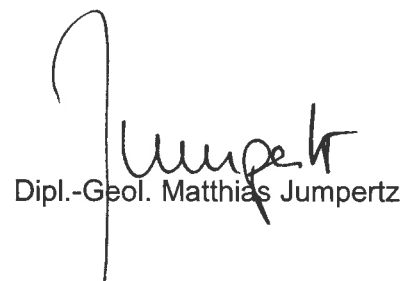 Jumpertz
Dipl.-Geol. Matthias Jumpertz